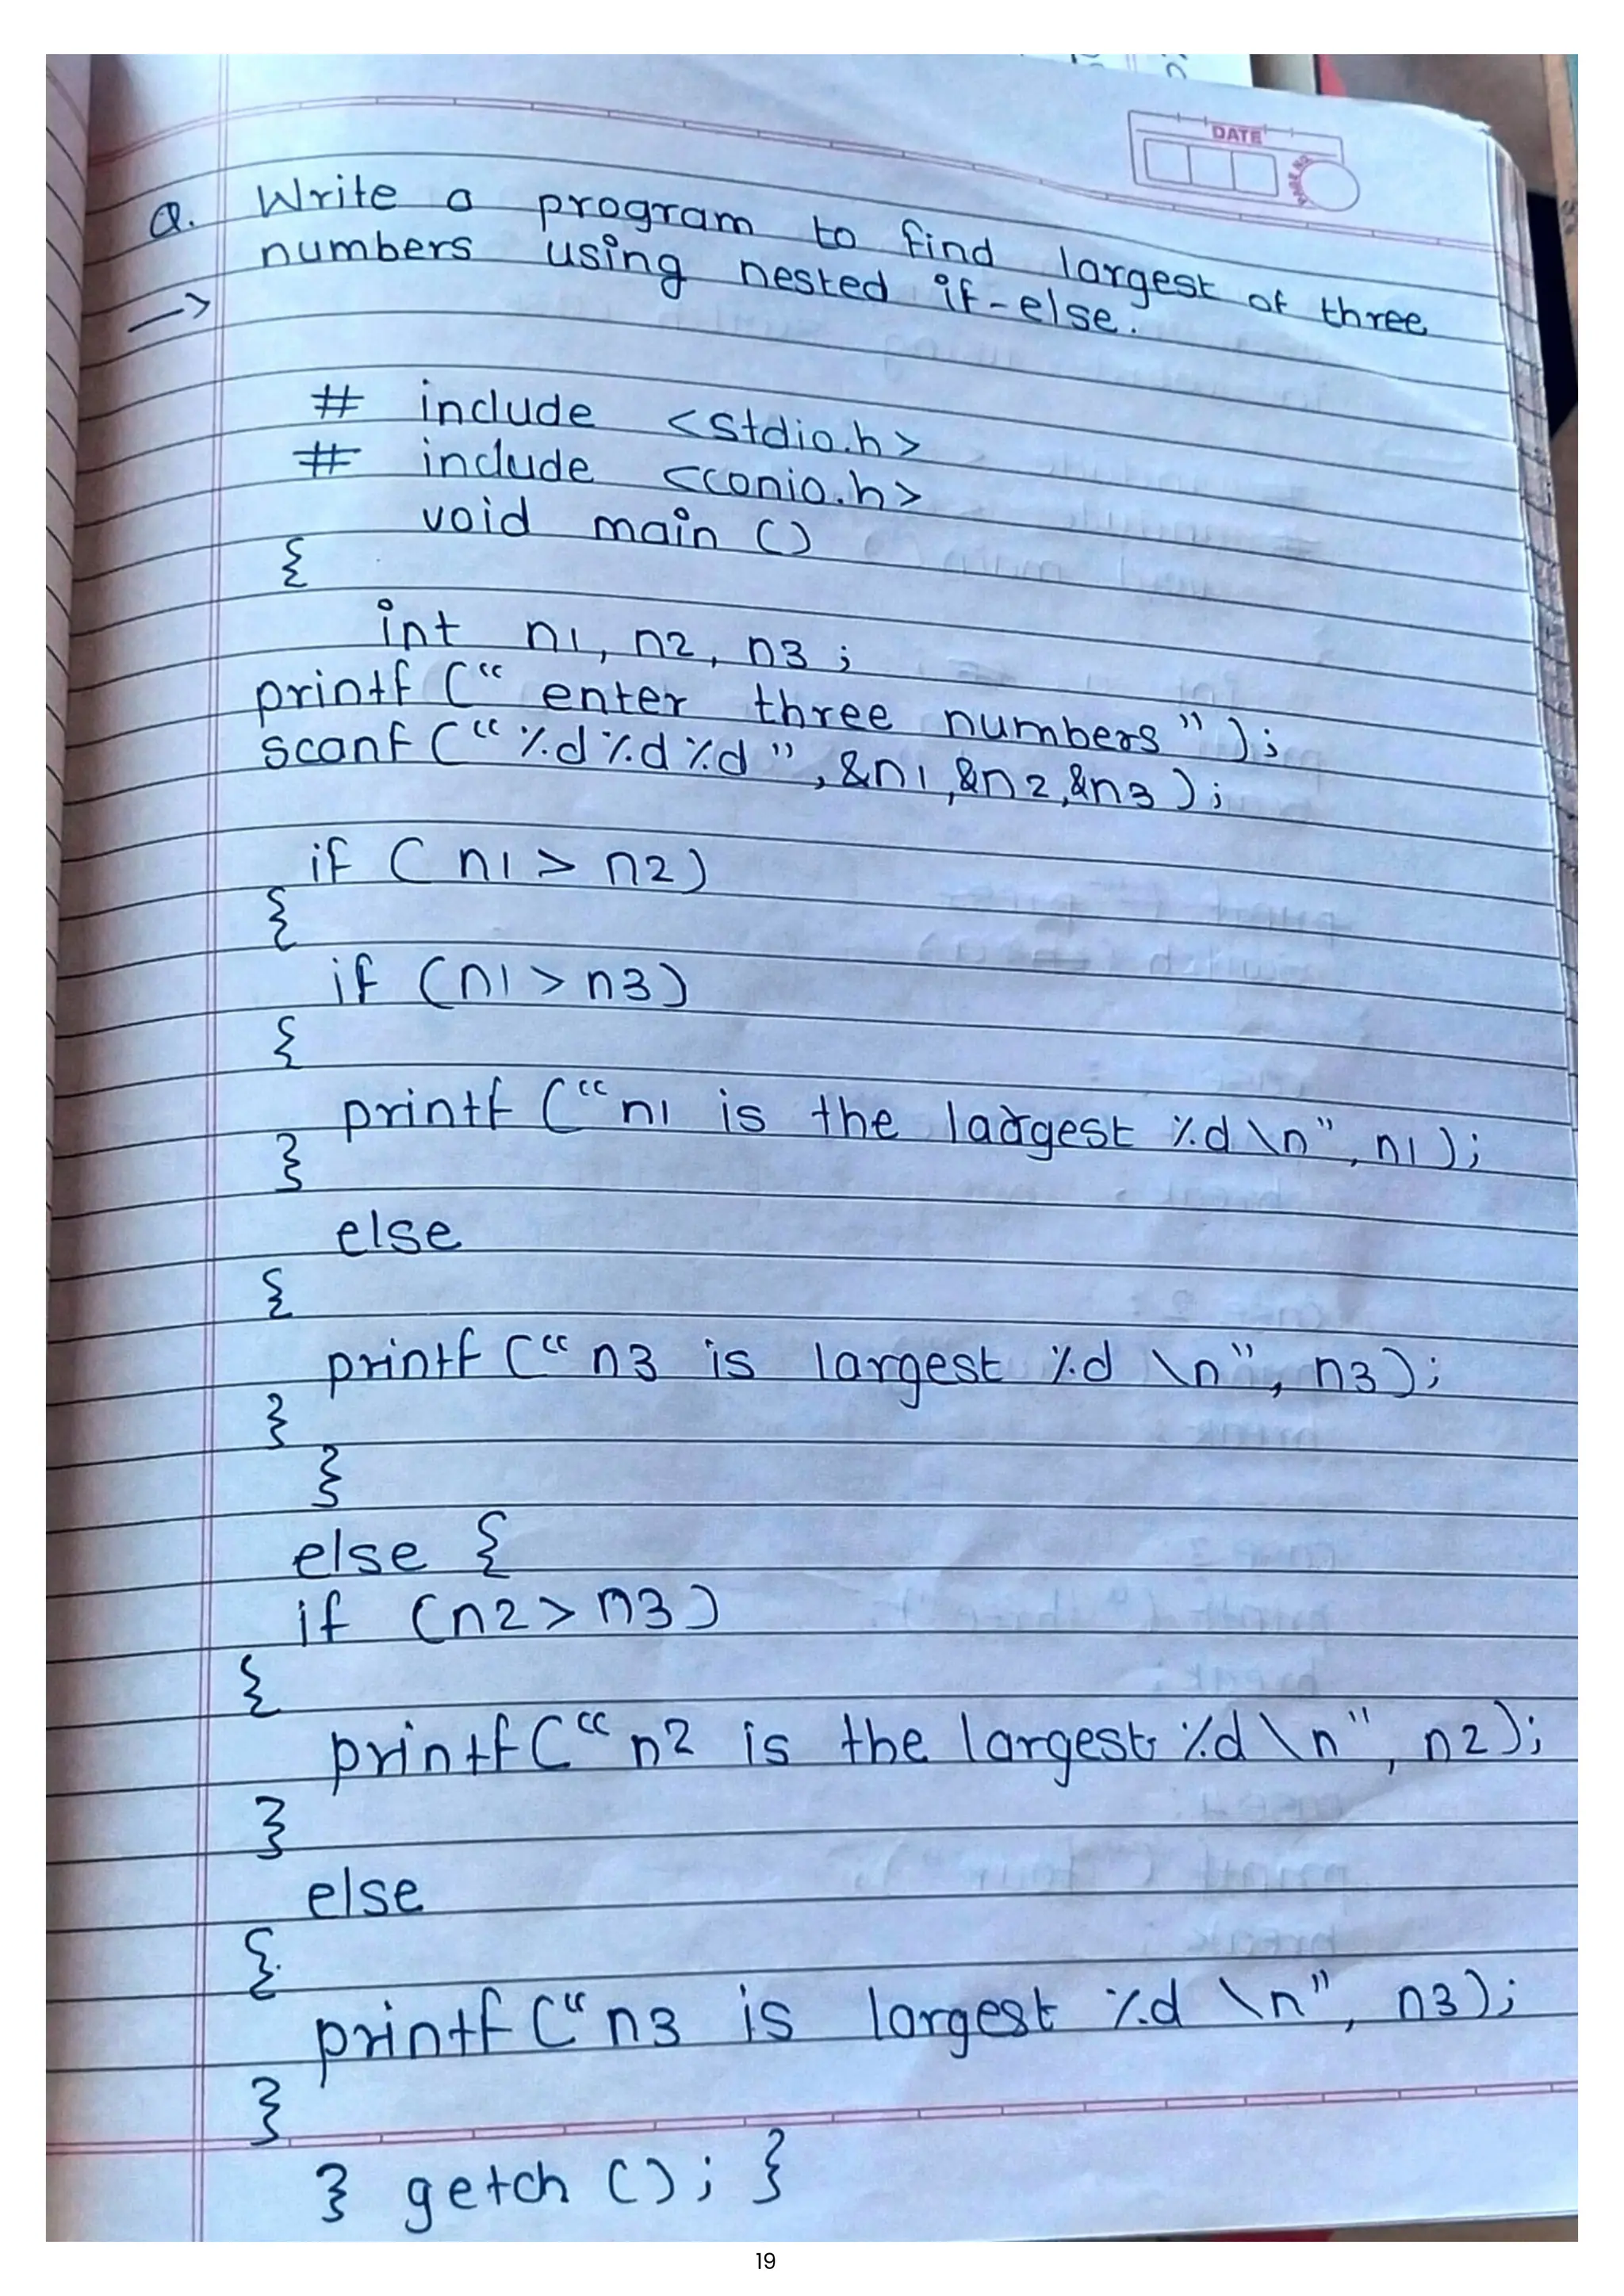 DATE
PAGE NO.
Q. Write a program to find largest of three
numbers using nested if-else.
->
# include <stdio.h>
# include <conio.h>
void main ()
{
int n1, n2, n3 ;
printf (“ enter three numbers ”) ;
scanf (“ %d %d %d ” , &n1 , &n2, &n3 ) ;
if ( n1 > n2)
{
if (n1 > n3)
{
printf (“n1 is the largest %d \n” , n1 ) ;
}
else
{
printf (“ n3 is largest %d \n”, n3) ;
}
}
else {
if (n2 > n3)
{
printf (“ n2 is the largest %d \n” , n2) ;
}
else
{
printf (“ n3 is largest %d \n” , n3) ;
}
} getch () ; }
19